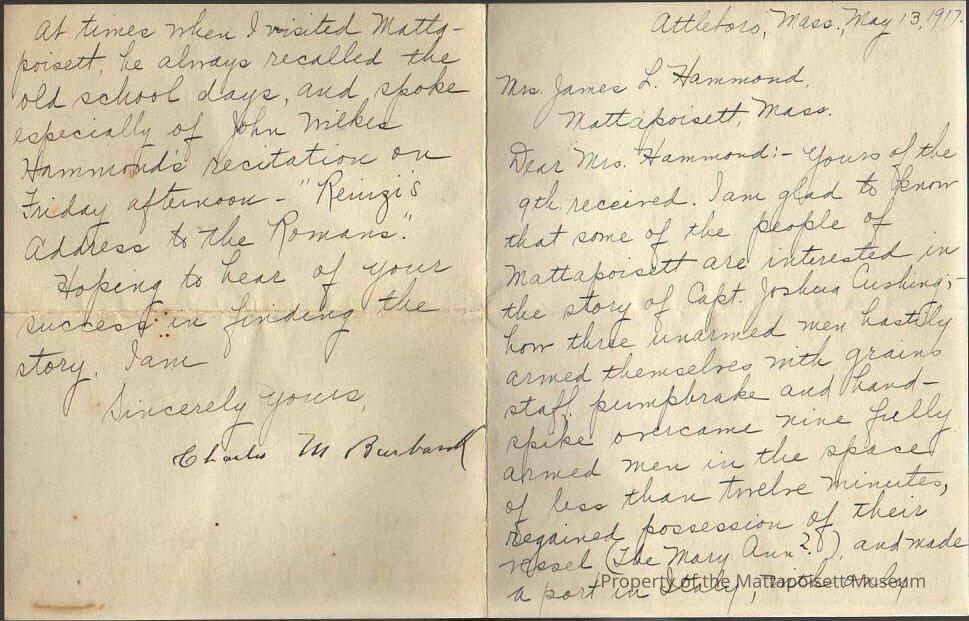 At times when I visited Matta-
poisett, he always recalled the
old school days, and spoke
especially of John Wilkes
Hammond's recitation on
Friday afternoon - "Reinzi's
Address to the Romans."
Hoping to hear of your
success in finding the
story, I am
Sincerely yours,
Charles M Burbank
Attleboro, Mass., May 13, 1917.
Mrs. James L. Hammond,
Mattapoisett, Mass.
Dear Mrs. Hammond:- Yours of the
9th received. I am glad to know
that some of the people of
Mattapoisett are interested in
the story of Capt. Joshua Cushing;-
how three unarmed men hastily
armed themselves with grains
staff, pumpbrake and hand-
spike overcame nine fully
armed men in the space
of less than twelve minutes,
regained possession of their
vessel (The Mary Ann?), and made
a port in Italy, with only
Property of the Mattapoisett Museum